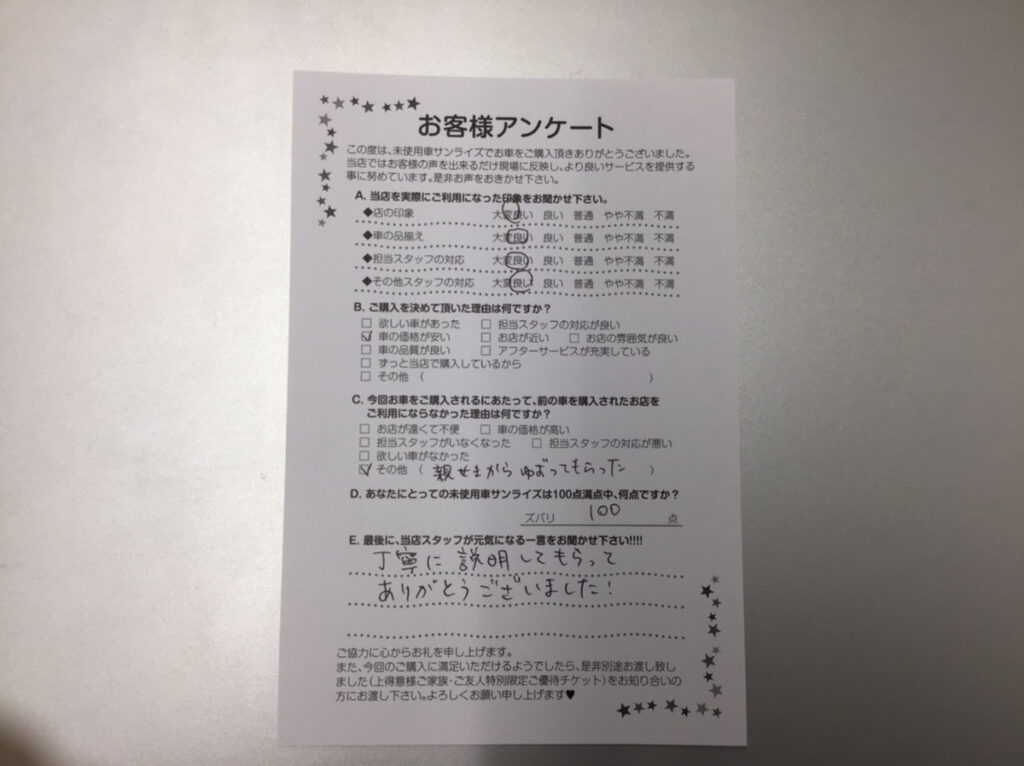 お客様アンケート
この度は、未使用車サンライズでお車をご購入頂きありがとうございました。
当店ではお客様の声を出来るだけ現場に反映し、より良いサービスを提供する
事に努めています。是非お声をおきかせ下さい。
A. 当店を実際にご利用になった印象をお聞かせ下さい。
◆店の印象 大変良い 良い 普通 やや不満 不満
◆車の品揃え 大変良い 良い 普通 やや不満 不満
◆担当スタッフの対応 大変良い 良い 普通 やや不満 不満
◆その他スタッフの対応 大変良い 良い 普通 やや不満 不満
B. ご購入を決めて頂いた理由は何ですか？
□ 欲しい車があった □ 担当スタッフの対応が良い
☑ 車の価格が安い □ お店が近い □ お店の雰囲気が良い
□ 車の品質が良い □ アフターサービスが充実している
□ ずっと当店で購入しているから
□ その他（ ）
C. 今回お車をご購入されるにあたって、前の車を購入されたお店を
ご利用にならなかった理由は何ですか？
□ お店が遠くて不便 □ 車の価格が高い
□ 担当スタッフがいなくなった □ 担当スタッフの対応が悪い
□ 欲しい車がなかった
☑ その他（ 親せきから ゆずってもらった ）
D. あなたにとっての未使用車サンライズは100点満点中、何点ですか？
ズバリ 100 点
E. 最後に、当店スタッフが元気になる一言をお聞かせ下さい!!!!
丁寧に説明してもらって
ありがとうございました！
ご協力に心からお礼を申し上げます。
また、今回のご購入に満足いただけるようでしたら、是非別途お渡し致し
ました（上得意様ご家族・ご友人特別限定ご優待チケット）をお知り合いの
方にお渡し下さい。よろしくお願い申し上げます♥